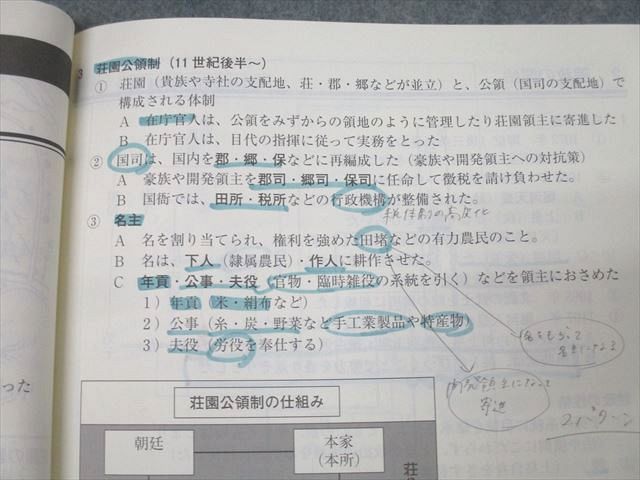 3 荘園公領制（11世紀後半〜）
① 荘園（貴族や寺社の支配地、荘・郡・郷などが並立）と、公領（国司の支配地）で
構成される体制
A 在庁官人は、公領をみずからの領地のように管理したり荘園領主に寄進した
B 在庁官人は、目代の指揮に従って実務をとった
② 国司は、国内を郡・郷・保などに再編成した（豪族や開発領主への対抗策）
A 豪族や開発領主を郡司・郷司・保司に任命して徴税を請け負わせた。
B 国衙では、田所・税所などの行政機構が整備された。
③ 名主
A 名を割り当てられ、権利を強めた田堵などの有力農民のこと。
B 名は、下人（隷属農民）・作人に耕作させた。
C 年貢・公事・夫役（官物・臨時雑役の系統を引く）などを領主におさめた
1）年貢（米・絹布など）
2）公事（糸・炭・野菜など手工業製品や特産物）
3）夫役（労役を奉仕する）
名をもらって
名主になる
開発領主になって
寄進
2パターン
った
荘園公領制の仕組み
朝廷
本家
（本所）
荘